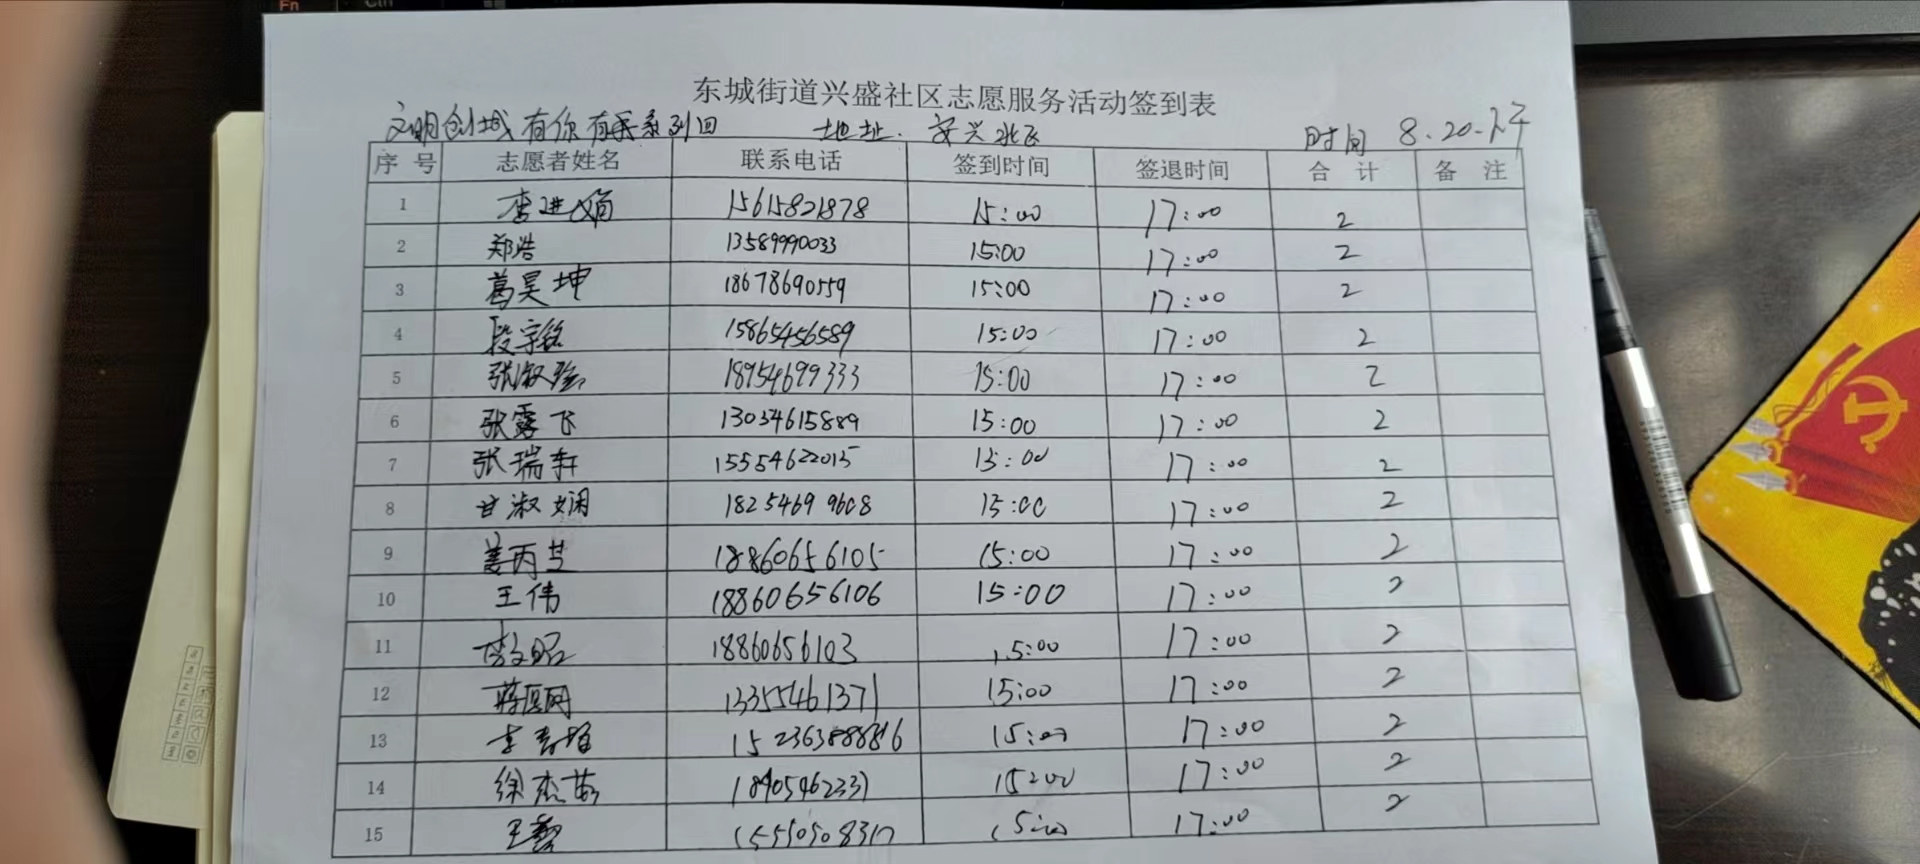 Fn Ctrl
东城街道兴盛社区志愿服务活动签到表
文明创城有你有我系列四 地址: 安兴北区 时间 8.20.下午
序号 志愿者姓名 联系电话 签到时间 签退时间 合计 备注
1 李进娟 15615821878 15:00 17:00 2
2 郑浩 13589990033 15:00 17:00 2
3 葛昊坤 18678690559 15:00 17:00 2
4 段宇铭 15865456589 15:00 17:00 2
5 张淑 18954699333 15:00 17:00 2
6 张露飞 13034615889 15:00 17:00 2
7 张瑞轩 15554622015 15:00 17:00 2
8 甘淑娴 18254699608 15:00 17:00 2
9 姜丙芝 18860656105 15:00 17:00 2
10 王伟 18860656106 15:00 17:00 2
11 李文昭 18860656103 15:00 17:00 2
12 13355461371 15:00 17:00 2
13 李 15:00 17:00 2
14 徐杰 15:00 17:00 2
15 王 15:00 17:00 2